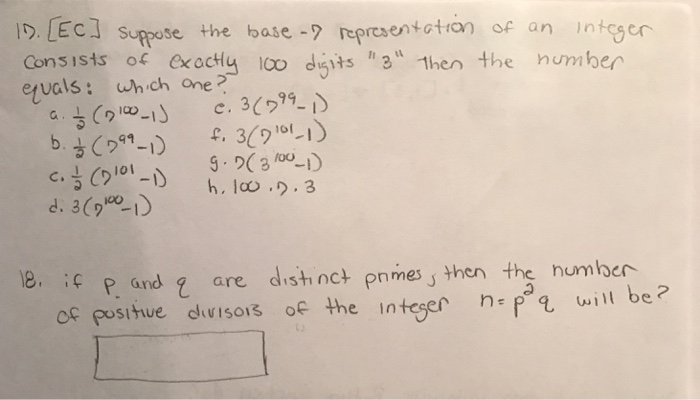 17. [EC] Suppose the base-7 representation of an integer
consists of exactly 100 digits "3" Then the number
equals: which one?
a. 1/2 (7^100 - 1) e. 3(7^99 - 1)
b. 1/2 (7^99 - 1) f. 3(7^101 - 1)
c. 1/2 (7^101 - 1) g. 7(3^100 - 1)
d. 3(7^100 - 1) h. 100 . 7 . 3
18. if p and q are distinct primes, then the number
of positive divisors of the integer n = p^2 q will be?